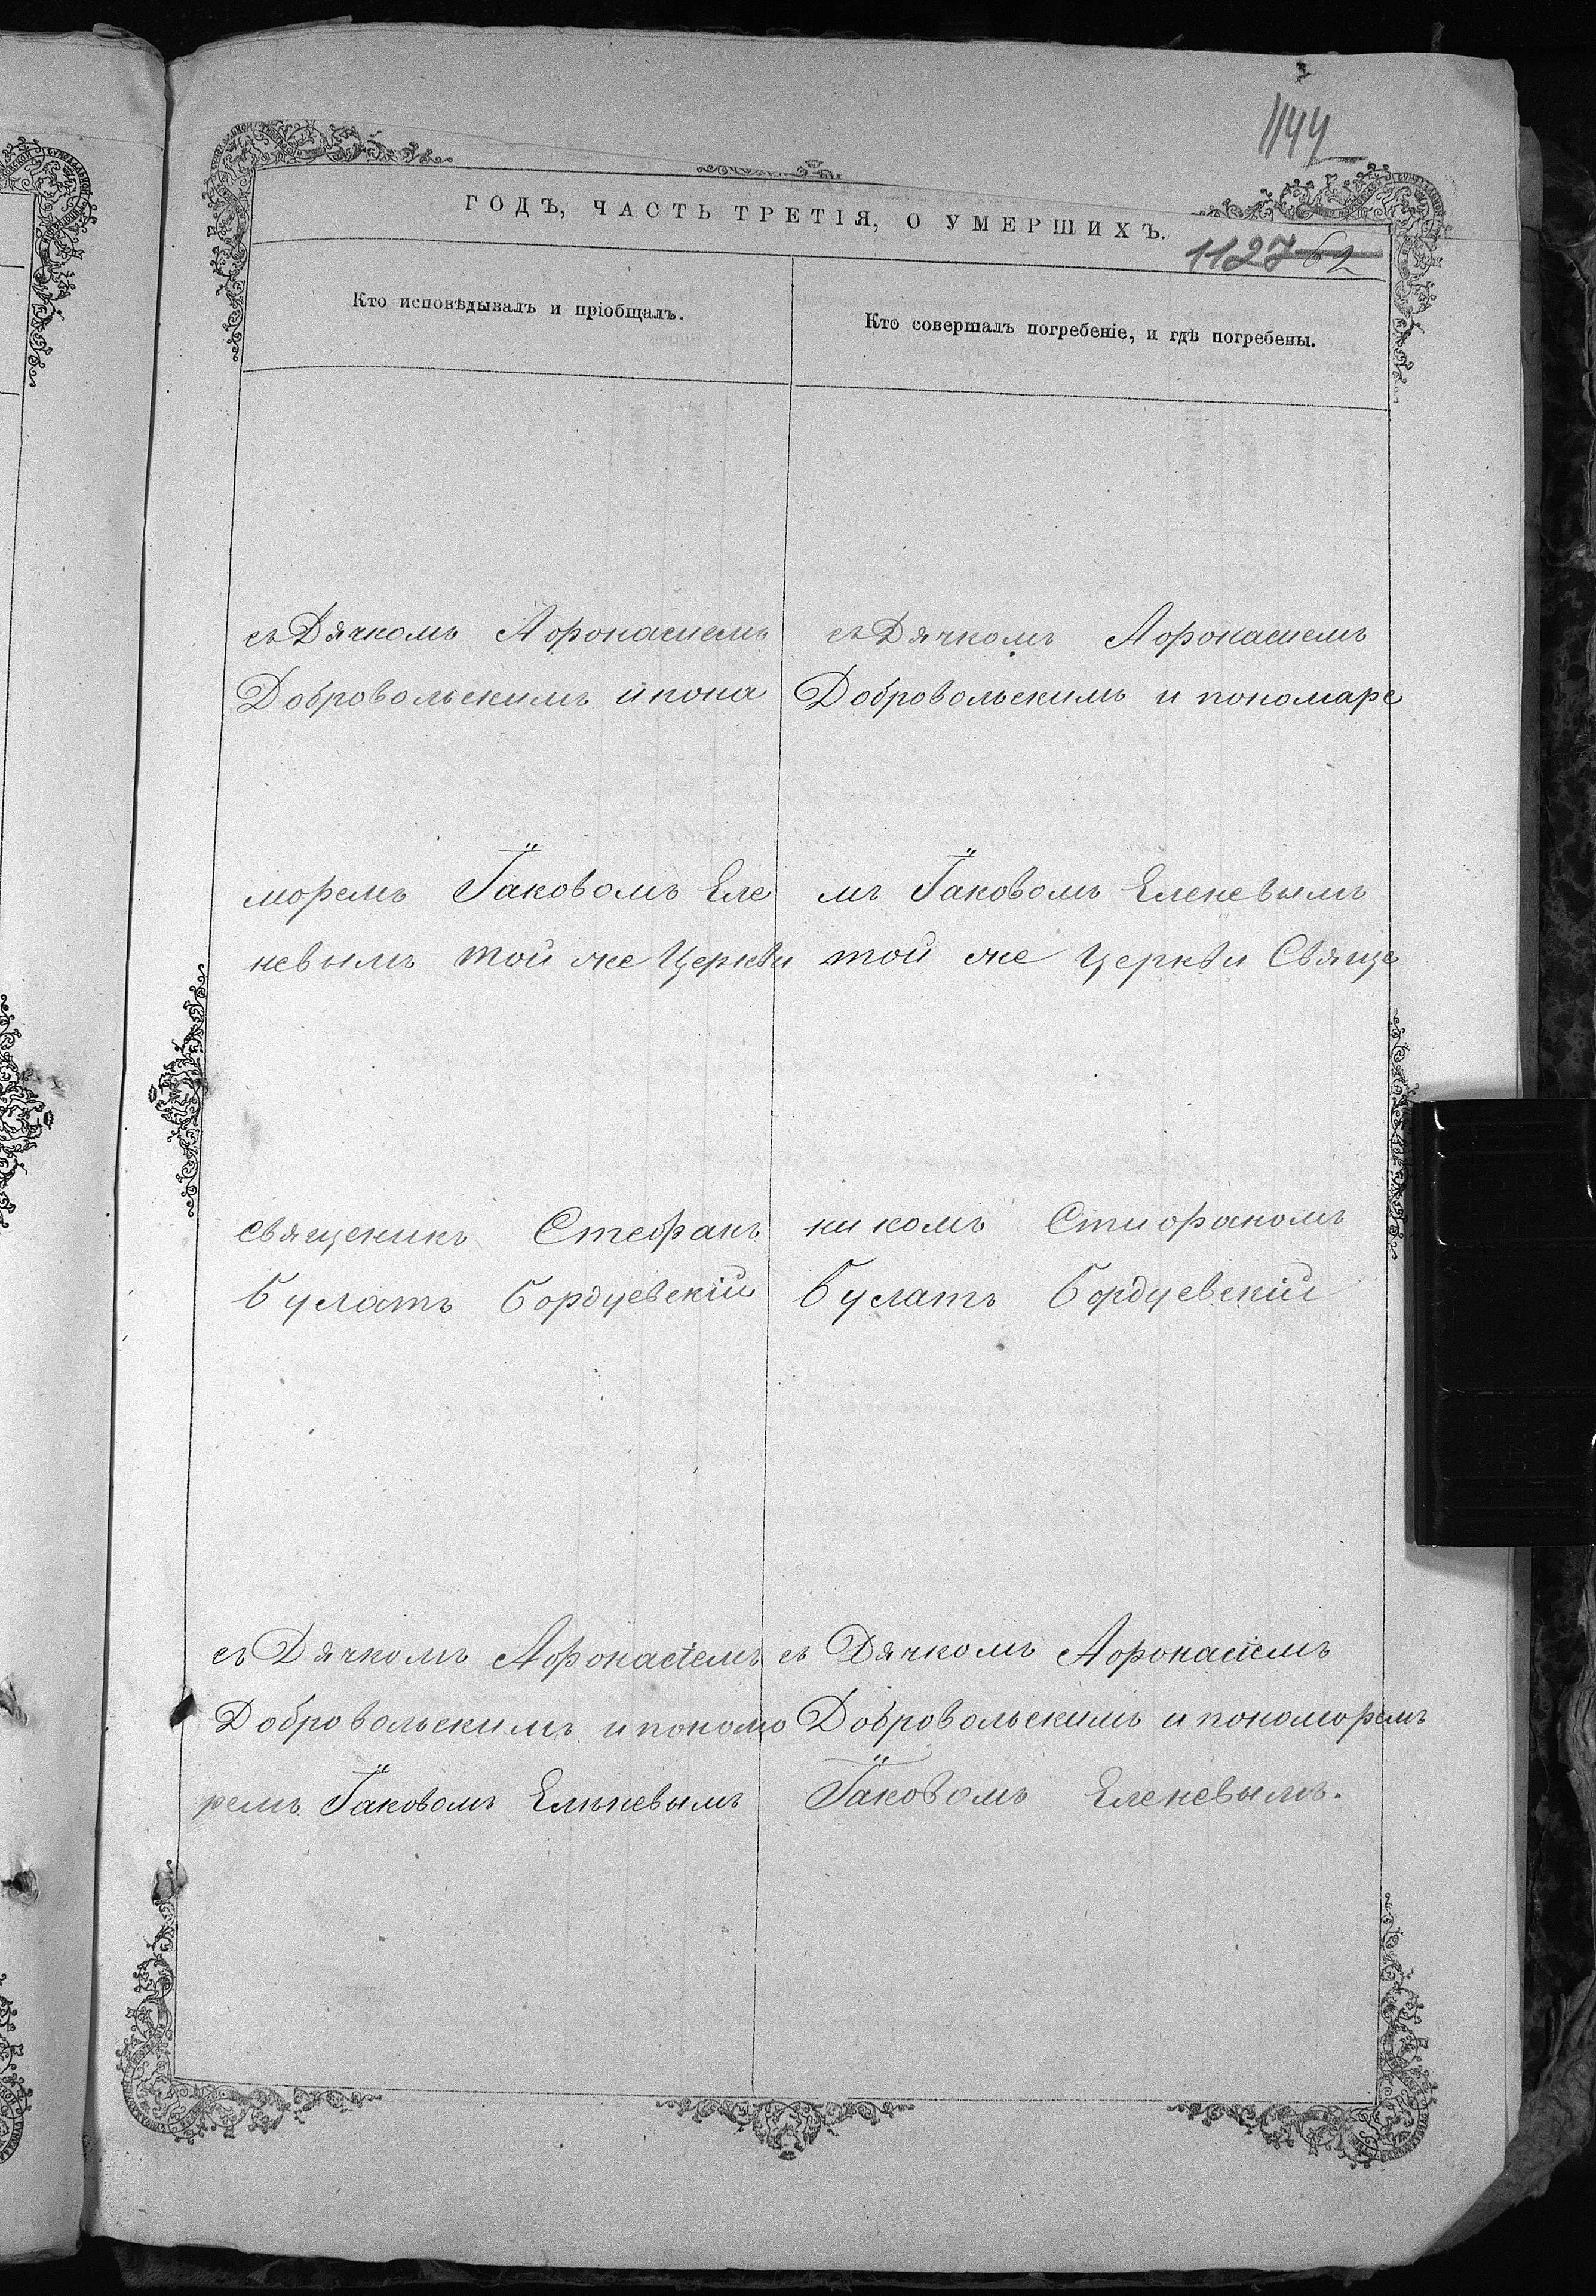 1144
ГОДЪ, ЧАСТЬ ТРЕТІЯ, О УМЕРШИХЪ.
1127 62
Кто исповѣдывалъ и пріобщалъ.
съ Дячкомъ Афонасиемъ
Добровольскимъ и пона
моремъ Іаковомъ Еле
невымъ той же Церкви
священикъ Стефанъ
Булатъ Бордуевскій
съ Дячкомъ Афонасіемъ
Добровольскимъ и пономо
ремъ Іаковомъ Еленевымъ
Кто совершалъ погребеніе, и гдѣ погребены.
съ Дячкомъ Афонасиемъ
Добровольскимъ и пономаре
мъ Іаковомъ Еленевымъ
той же Церкви Свяще
никомъ Стифаномъ
Булатъ Бордуевскій
съ Дячкомъ Афонасіемъ
Добровольскимъ и пономоремъ
Іаковомъ Еленевымъ.